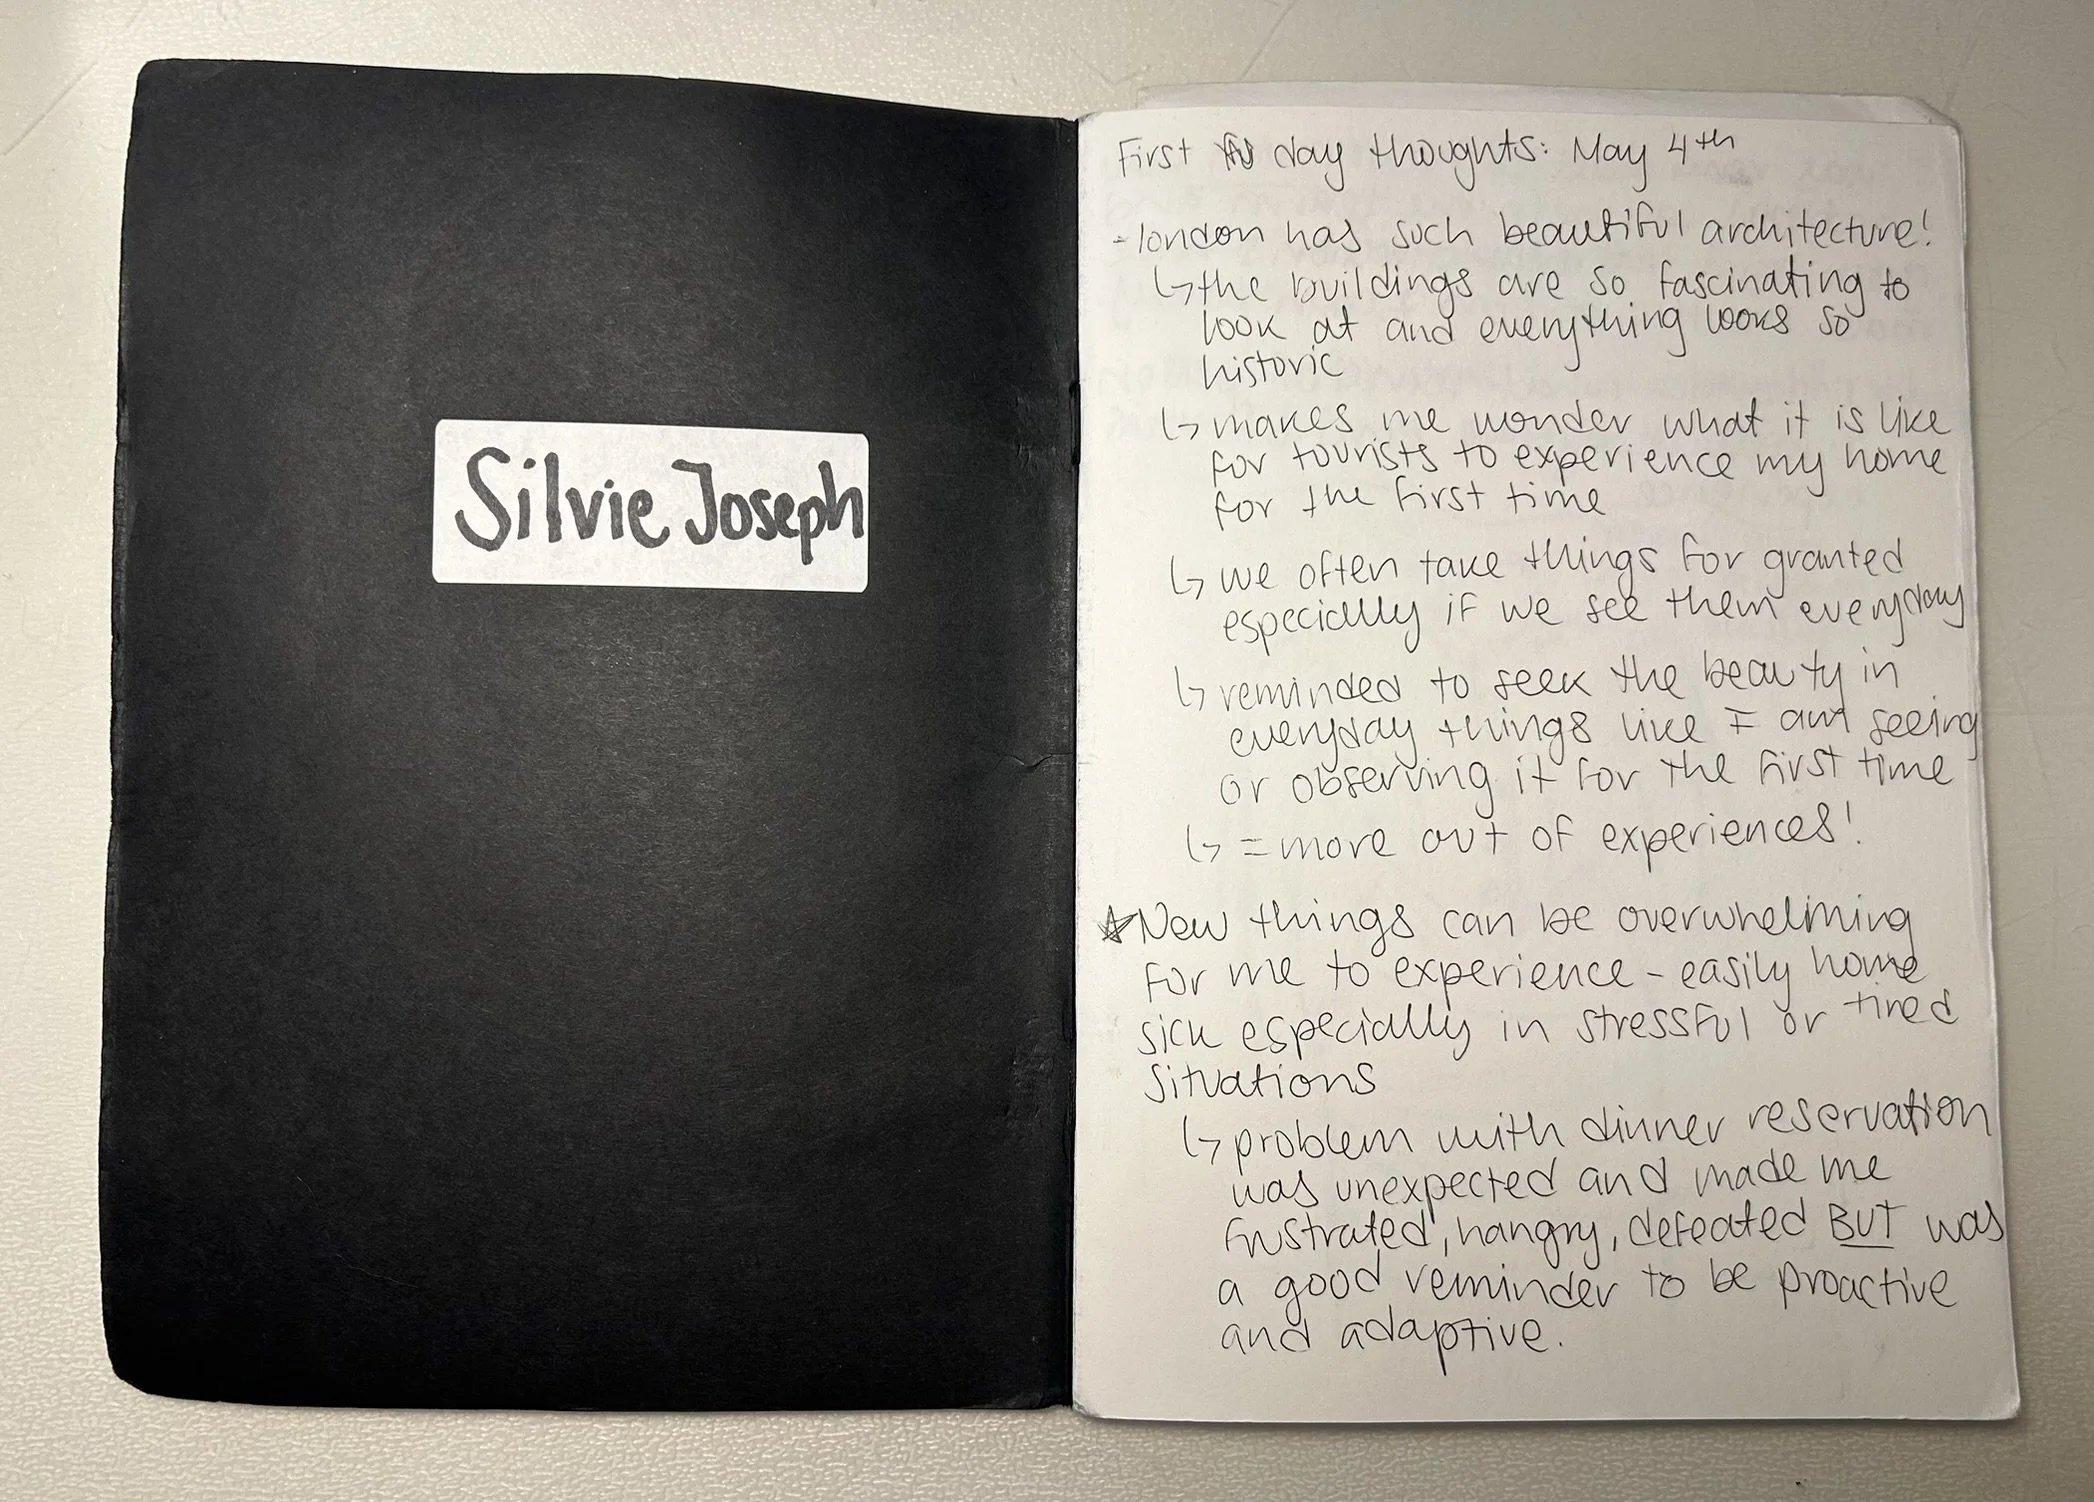 Silvie Joseph
First day thoughts: May 4th
- london has such beautiful architecture!
↳ the buildings are so fascinating to
look at and everything looks so
historic
↳ makes me wonder what it is like
for tourists to experience my home
for the first time
↳ we often take things for granted
especially if we see them everyday
↳ reminded to seek the beauty in
everyday things like I am seeing
or observing it for the first time
↳ = more out of experiences!
☆ New things can be overwhelming
for me to experience - easily home
sick especially in stressful or tired
situations
↳ problem with dinner reservation
was unexpected and made me
frustrated, hangry, defeated BUT was
a good reminder to be proactive
and adaptive.